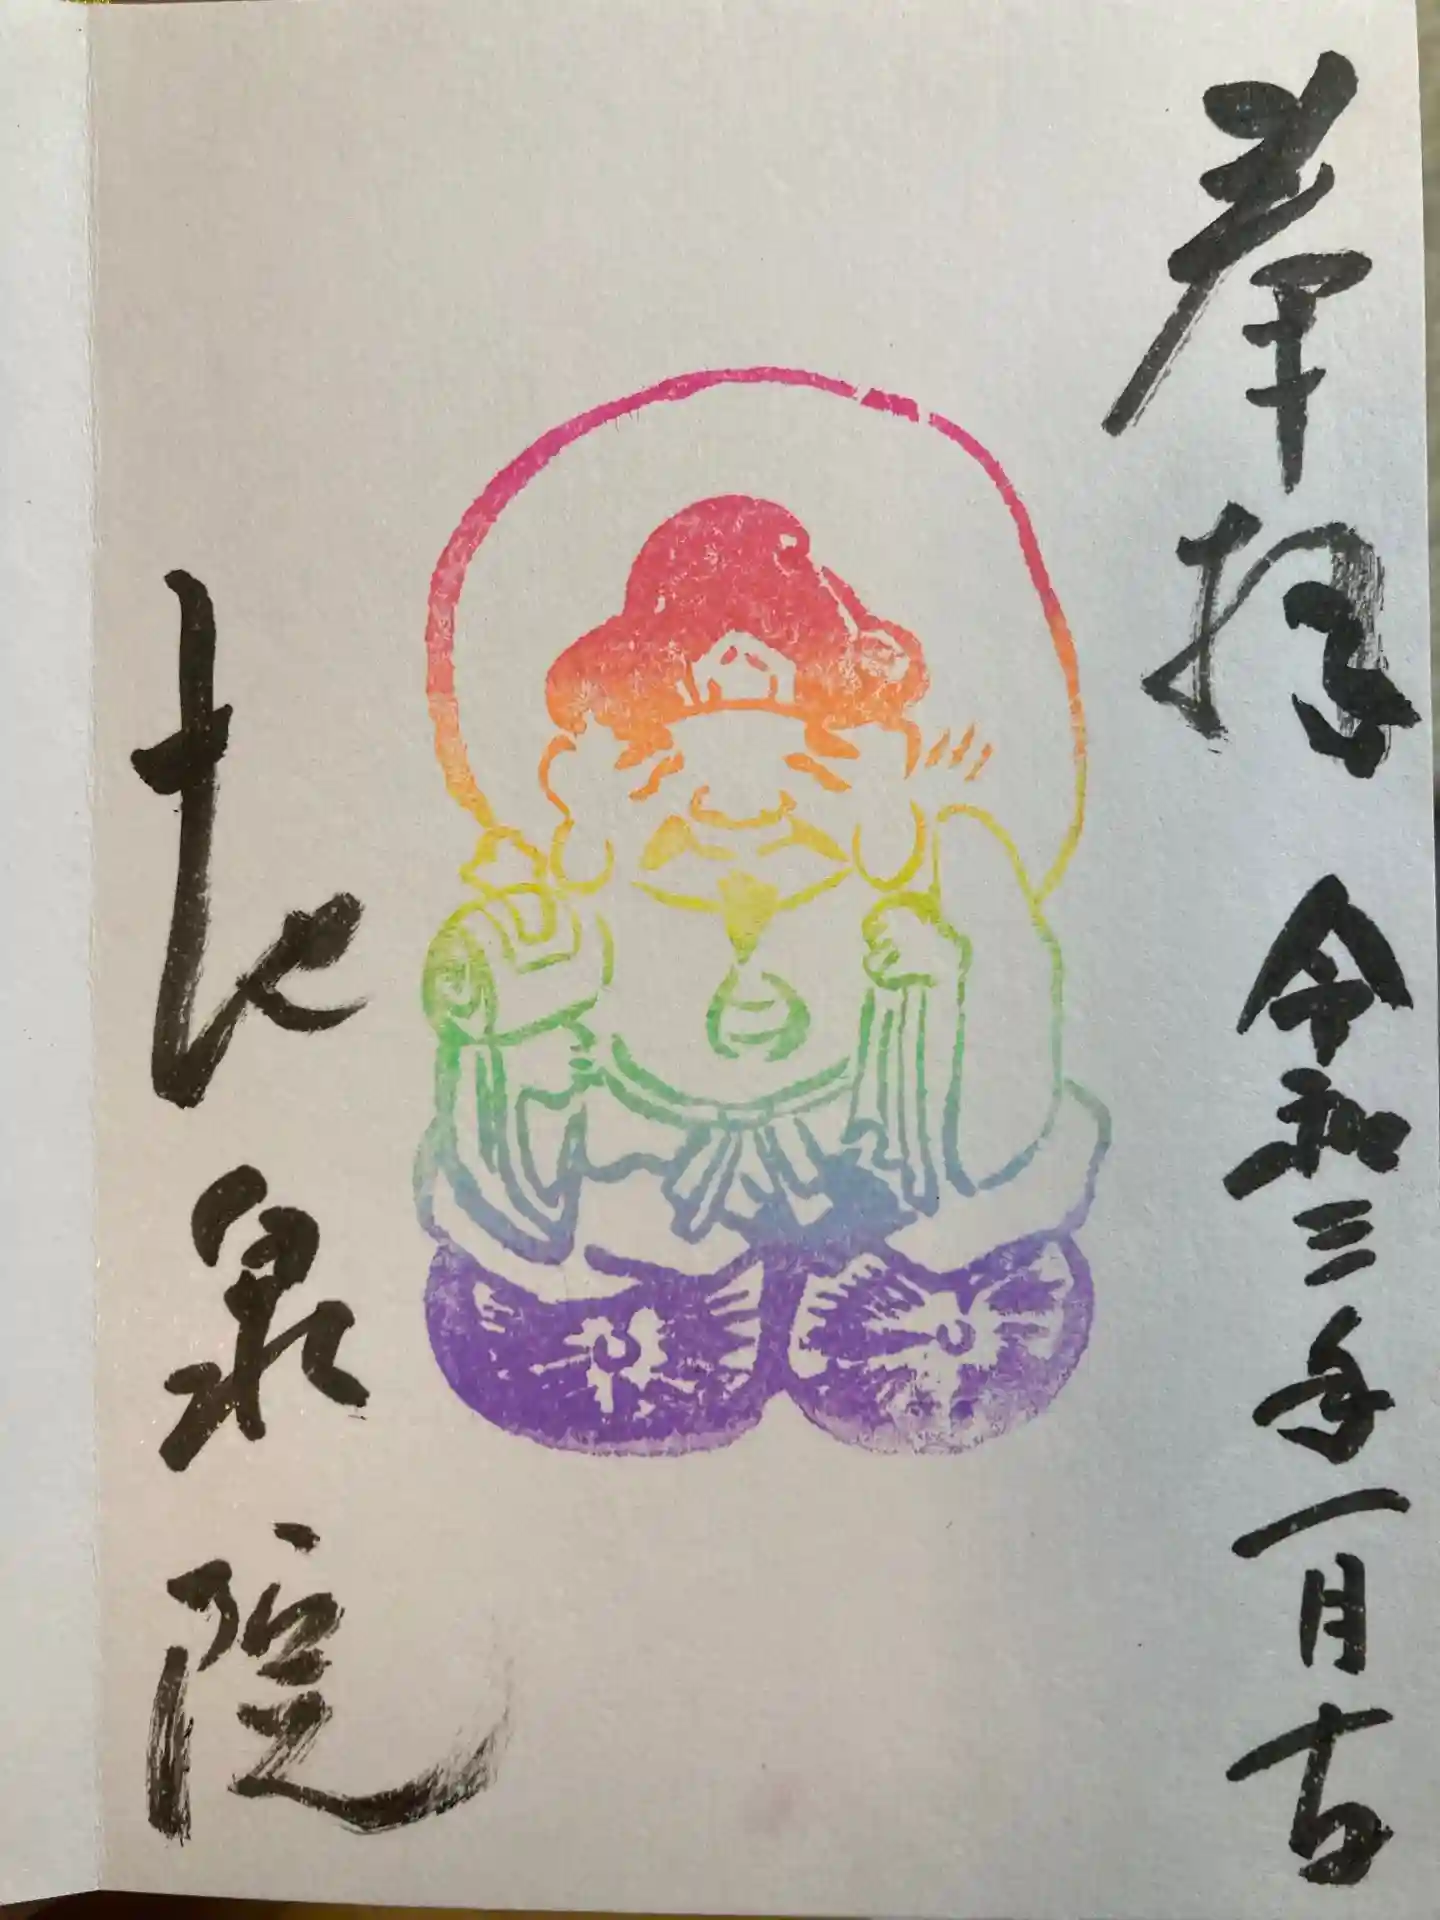 奉拝 令和三年一月吉
北泉院